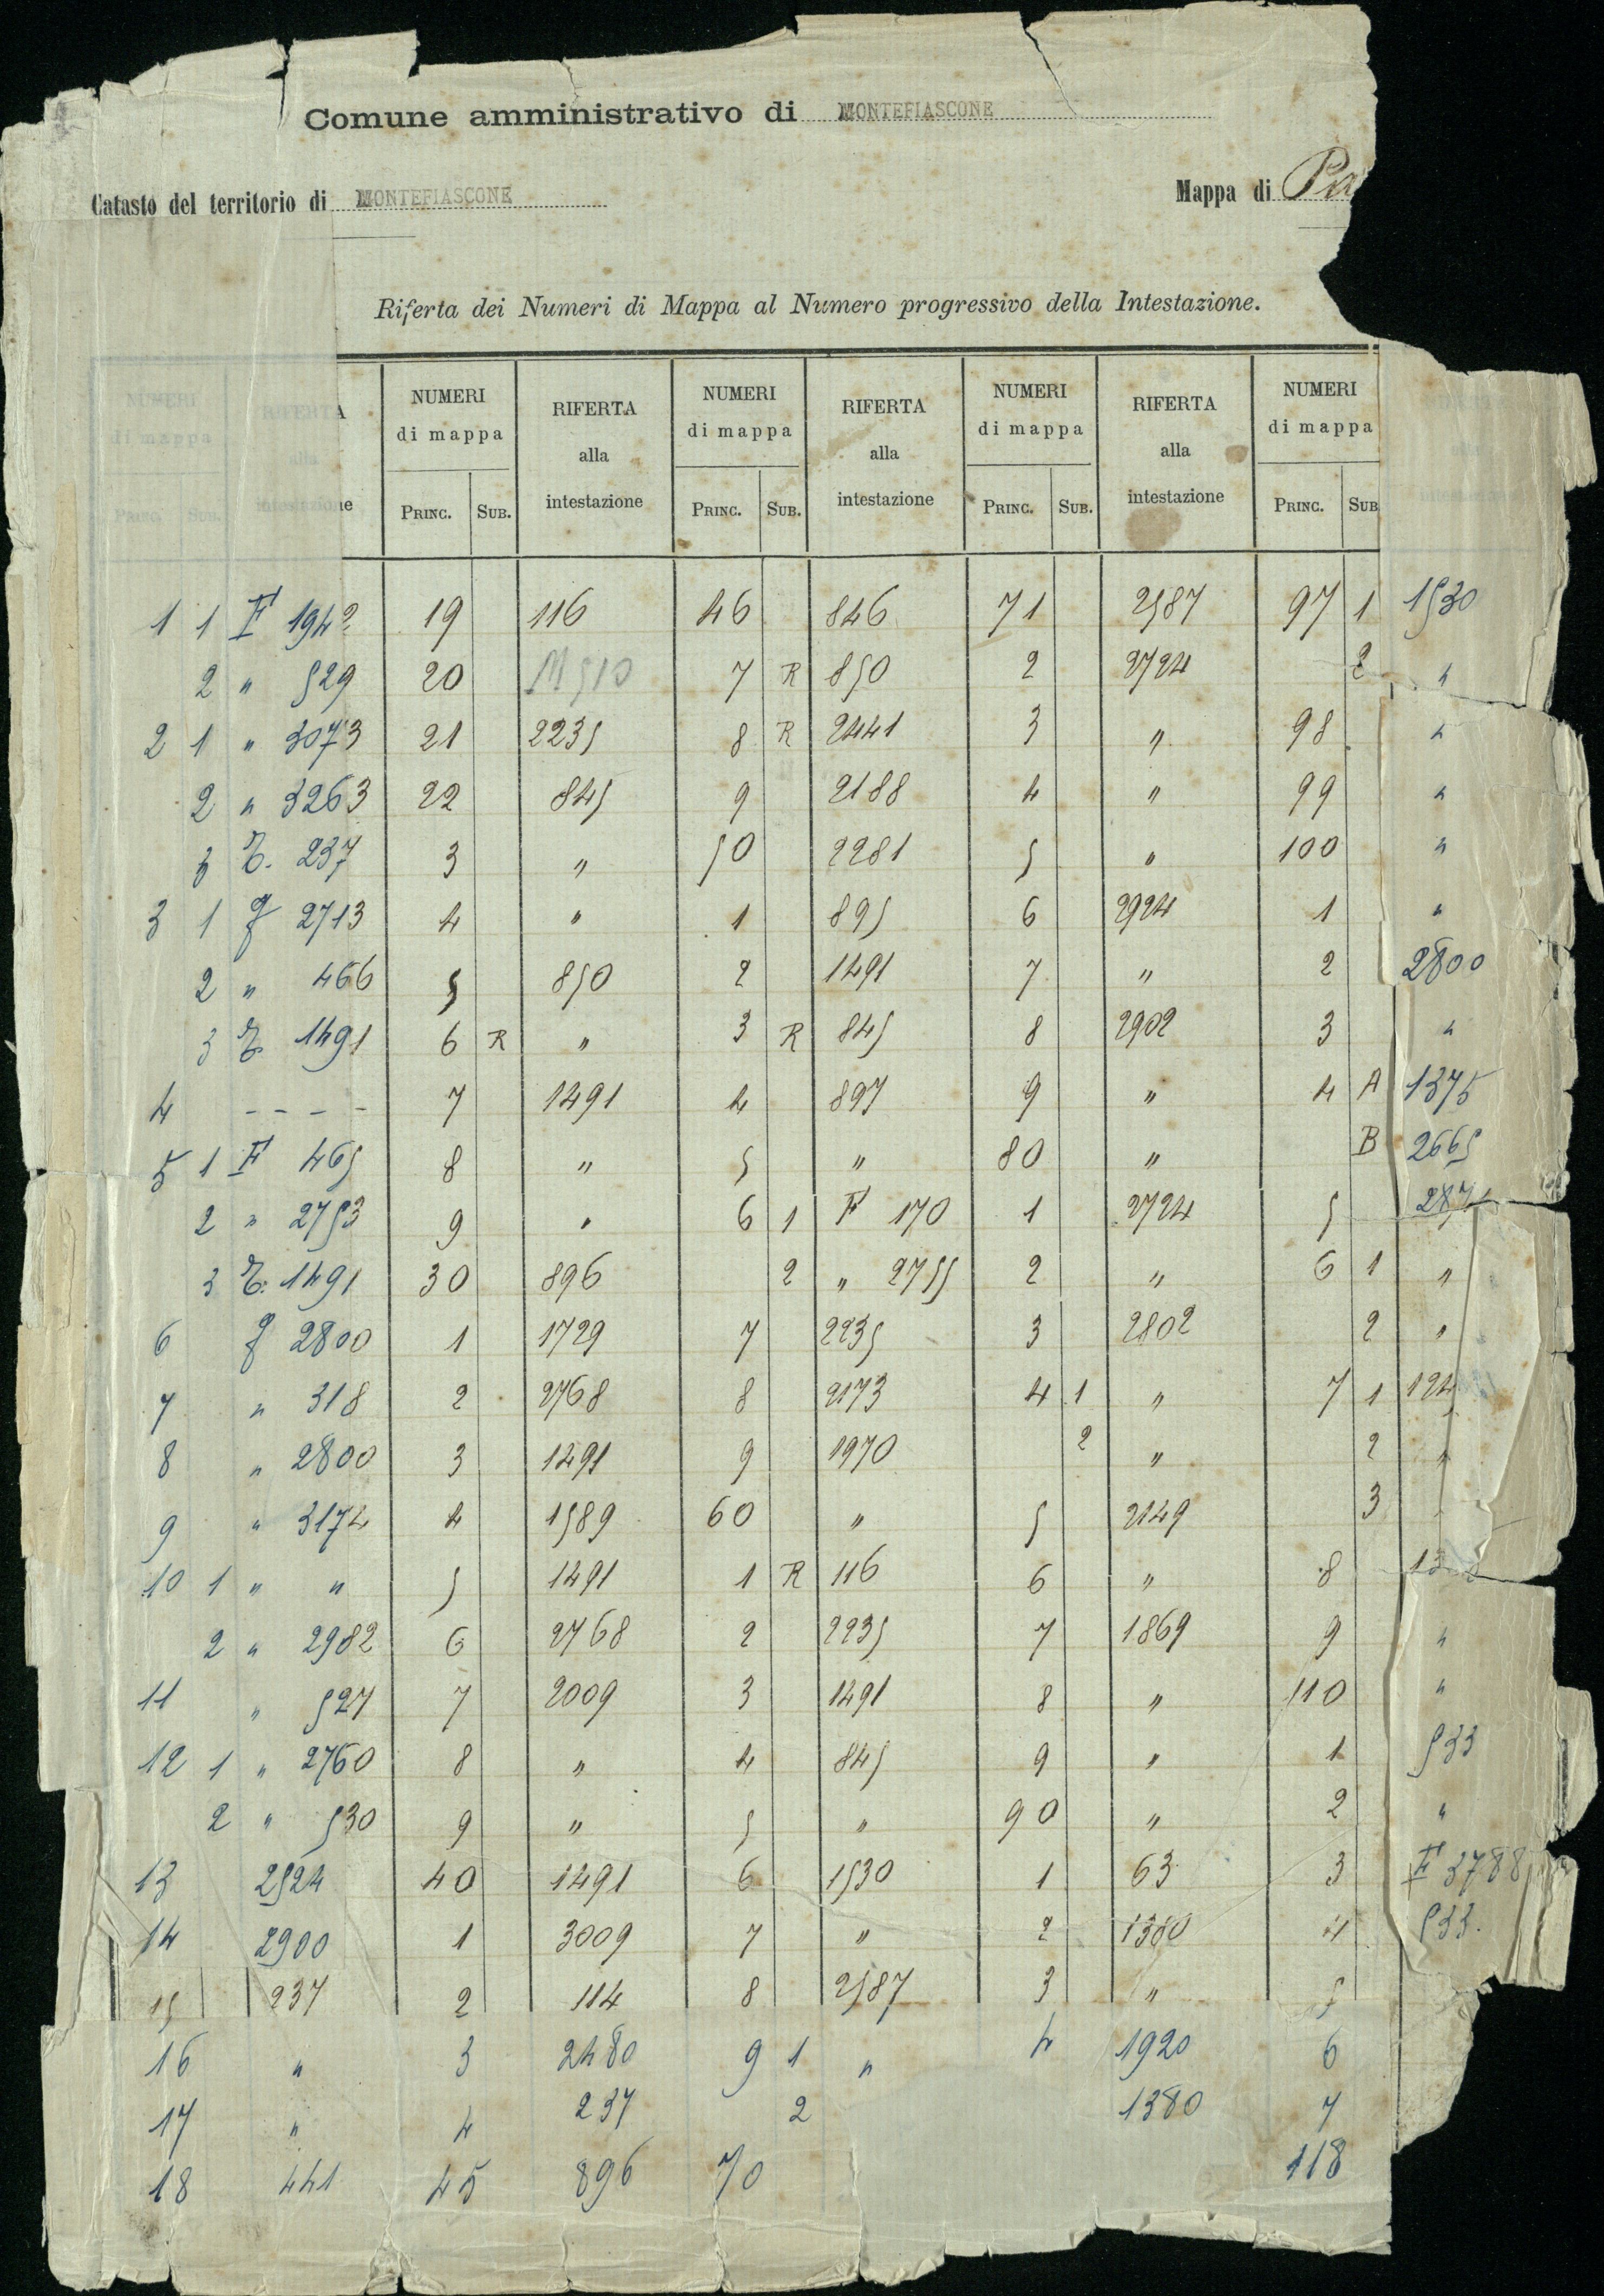 Comune amministrativo di MONTEFIASCONE
Catasto del territorio di MONTEFIASCONE Mappa di
Riferta dei Numeri di Mappa al Numero progressivo della Intestazione.
NUMERI RIFERTA NUMERI RIFERTA NUMERI RIFERTA NUMERI RIFERTA NUMERI
di mappa alla di mappa alla di mappa alla di mappa alla di mappa
PRINC. SUB. intestazione PRINC. SUB. intestazione PRINC. SUB. intestazione PRINC. SUB. intestazione PRINC. SUB
1 1 F 1942 19 116 46 846 71 2587 97 1 1530
2 " 529 20 7 R 850 2 2724 2 "
2 1 " 3073 21 2235 8 R 2441 3 " 98 "
2 " 3263 22 845 9 2188 4 " 99 "
3 237 3 " 50 2281 5 " 100 "
3 1 2713 4 " 1 895 6 2924 1 "
2 " 466 5 850 2 1491 7 " 2 2800
3 1491 6 R " 3 R 845 8 2902 3 "
4 - - - - 7 1491 4 897 9 " 4 A 1375
5 1 F 465 8 " 5 " 80 " B 2665
2 " 2753 9 " 6 1 F 170 1 2724 5
3 1491 30 896 2 " 2755 2 " 6 1 "
6 2800 1 1729 7 2235 3 2802 2 "
7 " 318 2 2768 8 2173 4 1 " 7 1 124
8 " 2800 3 1491 9 1970 2 " 2 "
9 " 3174 4 1589 60 " 5 2149 3
10 1 " " 5 1491 1 R 116 6 " 8
2 " 2982 6 2768 2 2235 7 1869 9 "
11 " 527 7 2009 3 1491 8 " 110 "
12 1 " 2760 8 " 4 845 9 " 1 533
2 " 530 9 " 5 " 90 " 2 "
13 2524 40 1491 6 1530 1 63 3 F 3788
14 2900 1 3009 7 " 2 1380 4 533.
15 237 2 114 8 2587 3 " 5
16 " 3 2480 9 1 " 4 1920 6
17 " 4 237 2 1380 7
18 441 45 896 70 118